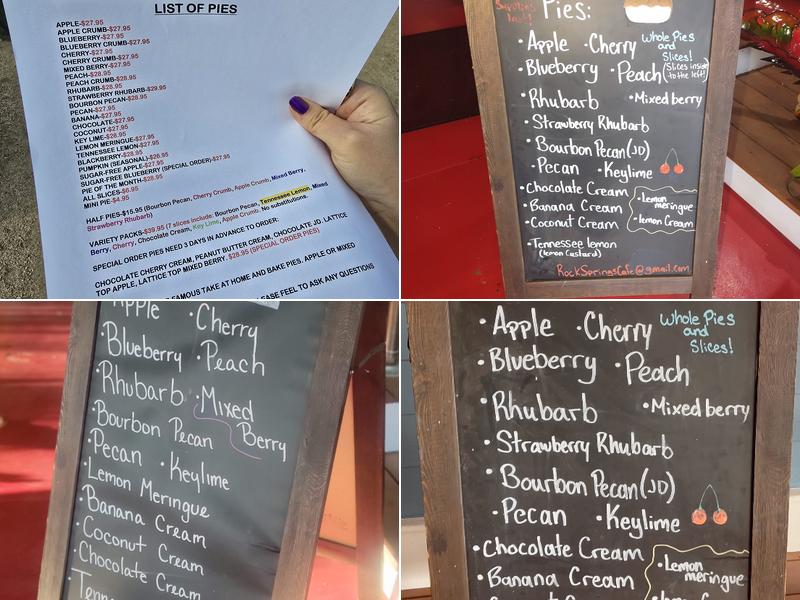 LIST OF PIES
APPLE-$27.95
APPLE CRUMB-$27.95
BLUEBERRY-$27.95
BLUEBERRY CRUMB-$27.95
CHERRY-$27.95
CHERRY CRUMB-$27.95
MIXED BERRY-$27.95
PEACH-$28.95
PEACH CRUMB-$28.95
RHUBARB-$28.95
STRAWBERRY RHUBARB-$29.95
BOURBON PECAN-$28.95
PECAN-$27.95
BANANA-$27.95
CHOCOLATE-$27.95
COCONUT-$27.95
KEY LIME-$26.95
LEMON MERINGUE-$27.95
TENNESSEE LEMON-$27.95
BLACKBERRY-$28.95
PUMPKIN (SEASONAL)-$26.95
SUGAR-FREE APPLE-$27.95
SUGAR-FREE BLUEBERRY (SPECIAL ORDER)-$27.95
PIE OF THE MONTH-$28.95
ALL SLICES-$6.95
MINI PIE-$4.95
HALF PIES-$15.95 (Bourbon Pecan, Cherry Crumb, Apple Crumb, Mixed Berry,
Strawberry Rhubarb)
VARIETY PACKS-$39.95 (7 slices include: Bourbon Pecan, Tennessee Lemon, Mixed
Berry, Cherry, Chocolate Cream, Key Lime, Apple Crumb. No substitutions.
SPECIAL ORDER PIES NEED 3 DAYS IN ADVANCE TO ORDER:
CHOCOLATE CHERRY CREAM, PEANUT BUTTER CREAM, CHOCOLATE JD. LATTICE
TOP APPLE, LATTICE TOP MIXED BERRY. $28.95 (SPECIAL ORDER PIES)
FAMOUS TAKE AT HOME AND BAKE PIES. APPLE OR MIXED
FEEL TO ASK ANY QUESTIONS
Pies:
Apple · Cherry
Whole Pies
and
Slices!
Blueberry · Peach
(Slices inside
to the left)
Rhubarb · Mixed berry
Strawberry Rhubarb
Bourbon Pecan (JD)
Pecan · Keylime
Chocolate Cream
Banana Cream
Coconut Cream
· Lemon
meringue
· lemon Cream
Tennessee lemon
(lemon Custard)
RockSpringsCafe@gmail.com
Apple · Cherry
· Blueberry · Peach
· Rhubarb · Mixed
Berry
· Bourbon Pecan
· Pecan · Keylime
· Lemon Meringue
· Banana Cream
· Coconut Cream
· Chocolate Cream
· Apple · Cherry
Whole Pies
and
Slices!
· Blueberry · Peach
· Rhubarb · Mixed berry
· Strawberry Rhubarb
· Bourbon Pecan (JD)
· Pecan · Keylime
· Chocolate Cream
· Banana Cream
· Lemon
meringue